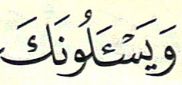 وَيَسْئَلُونَكَ